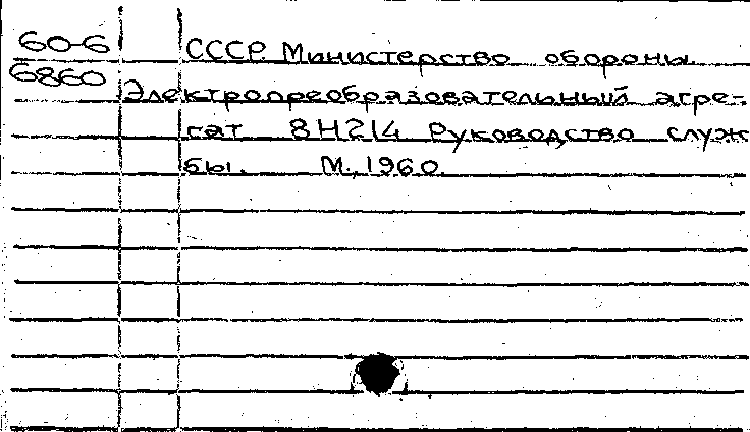 60-6
6860
СССР. Министерство обороны.
Электропреобразовательный агре-
гат 8Н214 Руководство служ
бы. М., 1960.